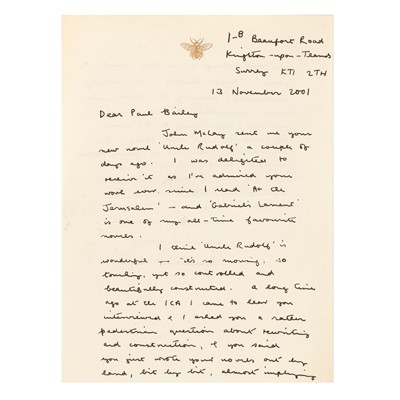 1-B Beaufort Road
Kingston-upon-Thames
Surrey KT1 2TH
13 November 2001
Dear Paul Bailey
John McLay sent me your
new novel 'Uncle Rudolf' a couple of
days ago. I was delighted to
receive it as I've admired your
work ever since I read 'At the
Jerusalem' – and 'Gabriel's Lament'
is one of my all-time favourite
novels.
I think 'Uncle Rudolf' is
wonderful – it's so moving, so
touching, yet so controlled and
beautifully constructed. A long time
ago at the ICA I came to hear you
interviewed & I asked you a rather
pedestrian question about rewriting
and construction, & you said
you just wrote your novels out by
hand, bit by bit, almost implying